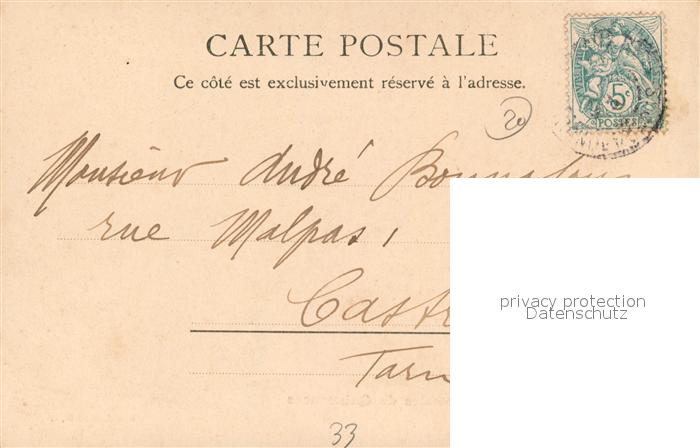 CARTE POSTALE
Ce côté est exclusivement réservé à l'adresse.
5c
POSTES
20
Monsieur André
rue Malpas,
Cast
Tarn
privacy protection
Datenschutz
33